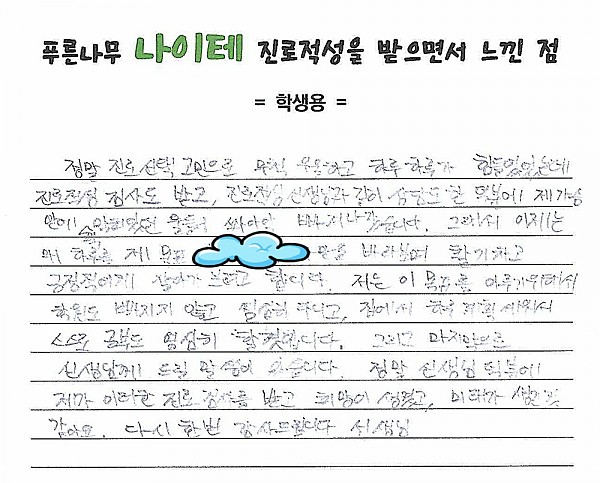 푸른나무 나이테 진로적성을 받으면서 느낀 점
= 학생용 =
정말 진로선택 고민으로 무척 우울하고 하루하루가 힘들었었는데
진로적성 검사도 받고, 진로적성 선생님과 같이 상담도 한 덕분에 제 가슴
안에 있던 우울이 빠져나갔습니다. 그래서 이제는
하루를 제 목표 만을 바라보며 활기차고
긍정적이게 살아가 보려고 합니다. 저는 이 목표를 이루기위해서
학원도 빠지지 않고 열심히 다니고, 집에서 하루 계획 세워서
스스로 공부도 열심히 할 것입니다. 그리고 마지막으로
선생님께 드릴 말씀이 있습니다. 정말 선생님 덕분에
제가 이러한 진로검사를 받고 희망이 생겼고, 미래가 생긴 것
같아요. 다시 한번 감사드립니다 선생님